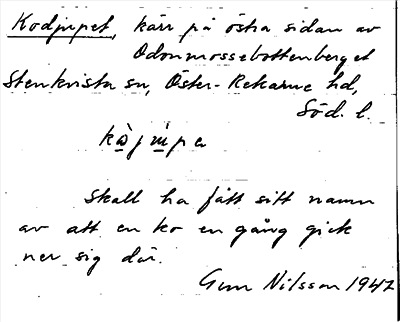 Kodjupet, kärr på östra sidan av
Odonmossebottenberget
Stenkvista sn, Öster-Rekarne hd,
Söd. l.
Skall ha fått sitt namn
av att en ko en gång gick
ner sig där.
Gun Nilsson 1947